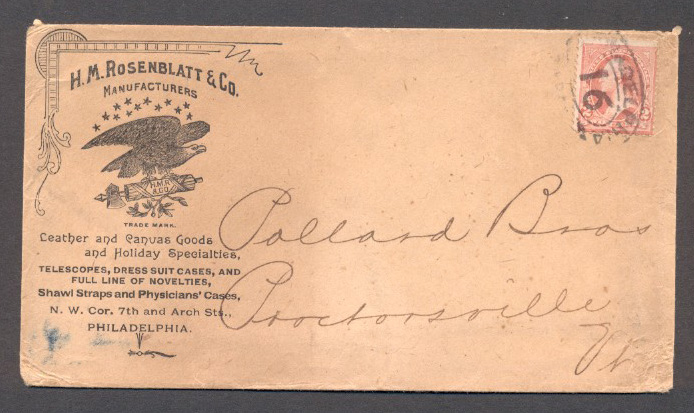 H. M. ROSENBLATT & CO.
MANUFACTURERS
H.M.R.
& CO.
TRADE MARK.
Leather and Canvas Goods
and Holiday Specialties,
TELESCOPES, DRESS SUIT CASES, AND
FULL LINE OF NOVELTIES,
Shawl Straps and Physicians' Cases,
N. W. Cor. 7th and Arch Sts.,
PHILADELPHIA.
16
Pollard Bros
Proctorsville
Vt